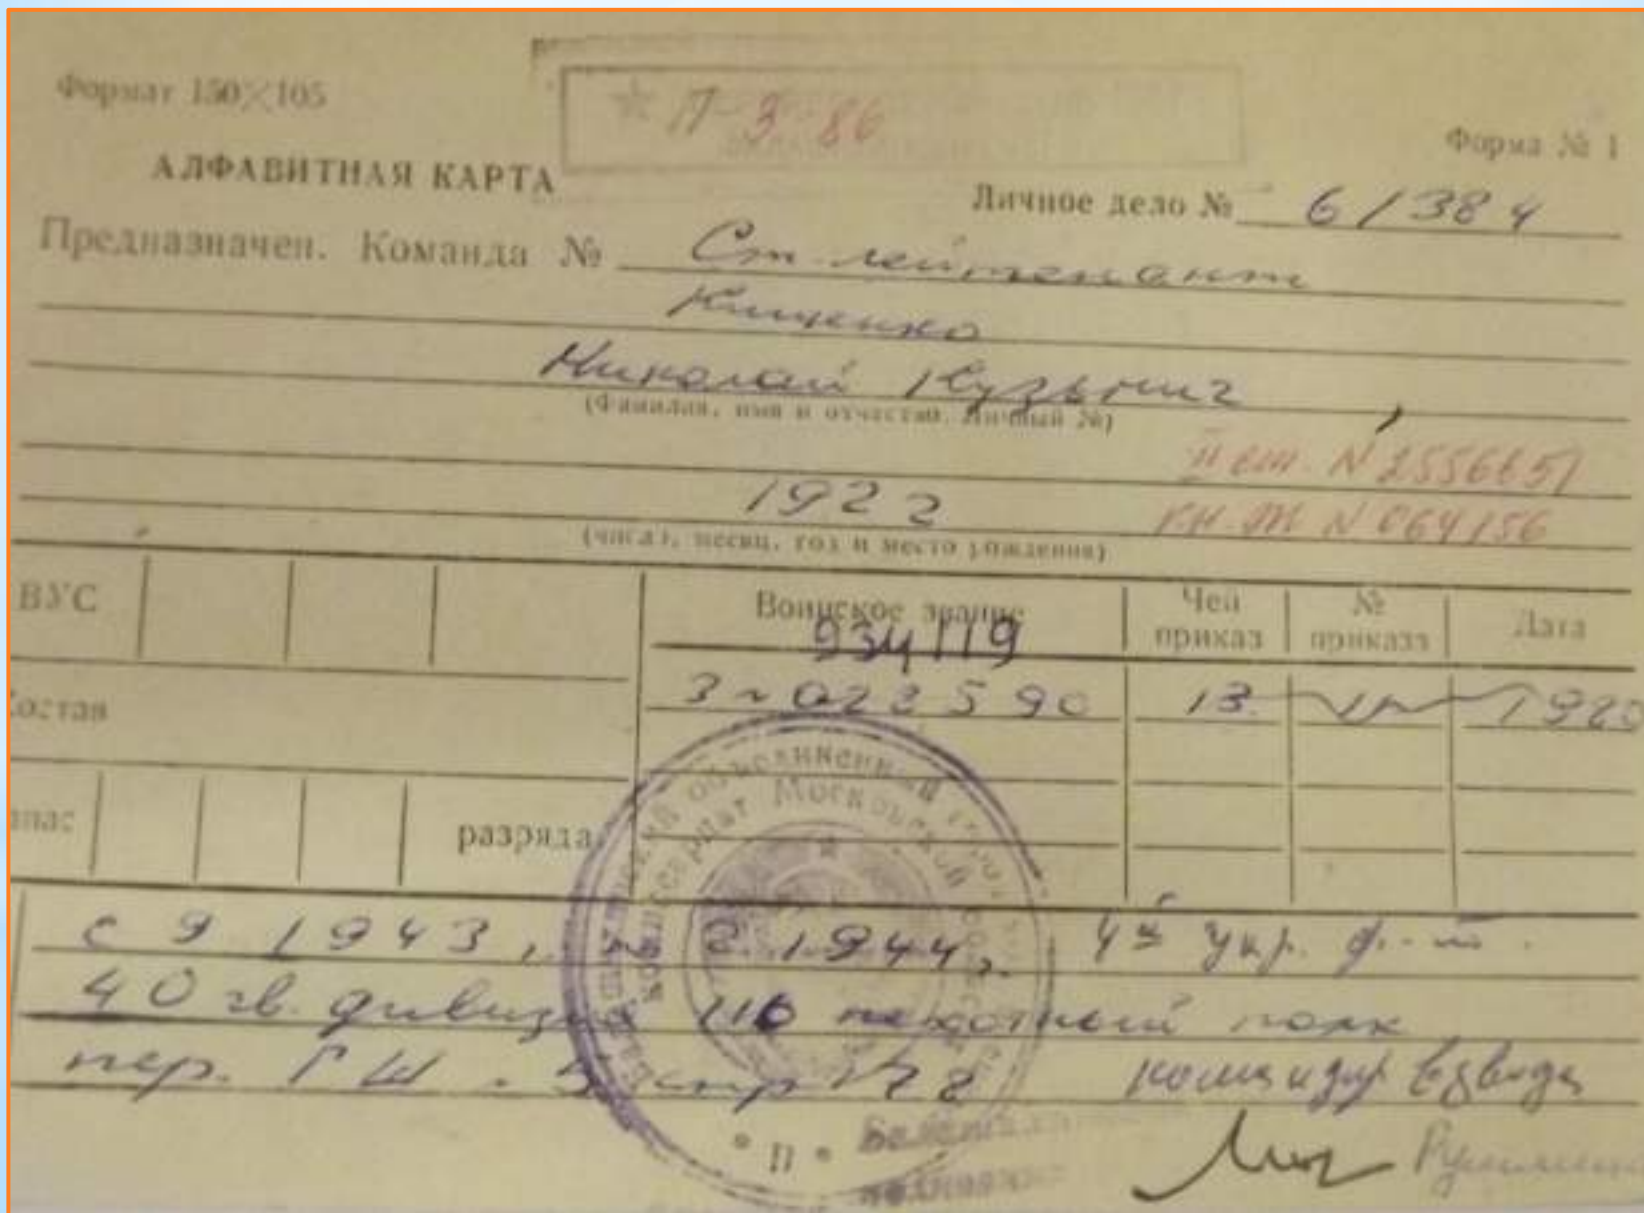 Формат 150×105
П-3-86
Форма № 1
АЛФАВИТНАЯ КАРТА
Личное дело № 6/384
Предназначен. Команда № Ст. лейтенант
Кищенко
Николай Кузьмич
(Фамилия, имя и отчество. Личный №)
II ст. N 2556651
1922
(число, месяц, год и место рождения)
N 064156
ВУС
Воинское звание
Чей приказ
№ приказа
Дата
934/19
023590
13
разряда
с 9 1943, 2 1944, 4й Укр. ф-т.
40 гв. дивизия 116 пехотный полк
пер. ГШ. 5 стр 172 командир взвода